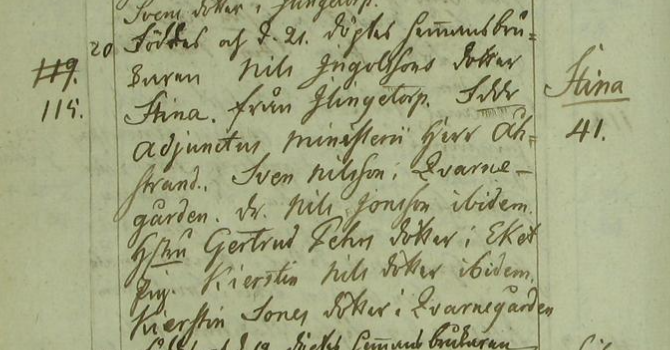 Svens dotter i Slingetorp.
20 Föddes och d. 21. döptes Hemmansbru=
119. 115. karen Nils Ingolssons dotter Stina 41.
Stina. från Slingetorp. Sddr
Adjunctus Ministerii Herr Åh=
strand. Sven Nilsson i Qvarne-
gården. dr. Nils Jonsson ibidem.
Hstru Gertrud Pehrs dotter i Eket
pig. Kierstin Nils dotter ibidem.
Kierstin Sones dotter i Qvarnegården
döptes Hemmansbrukaren